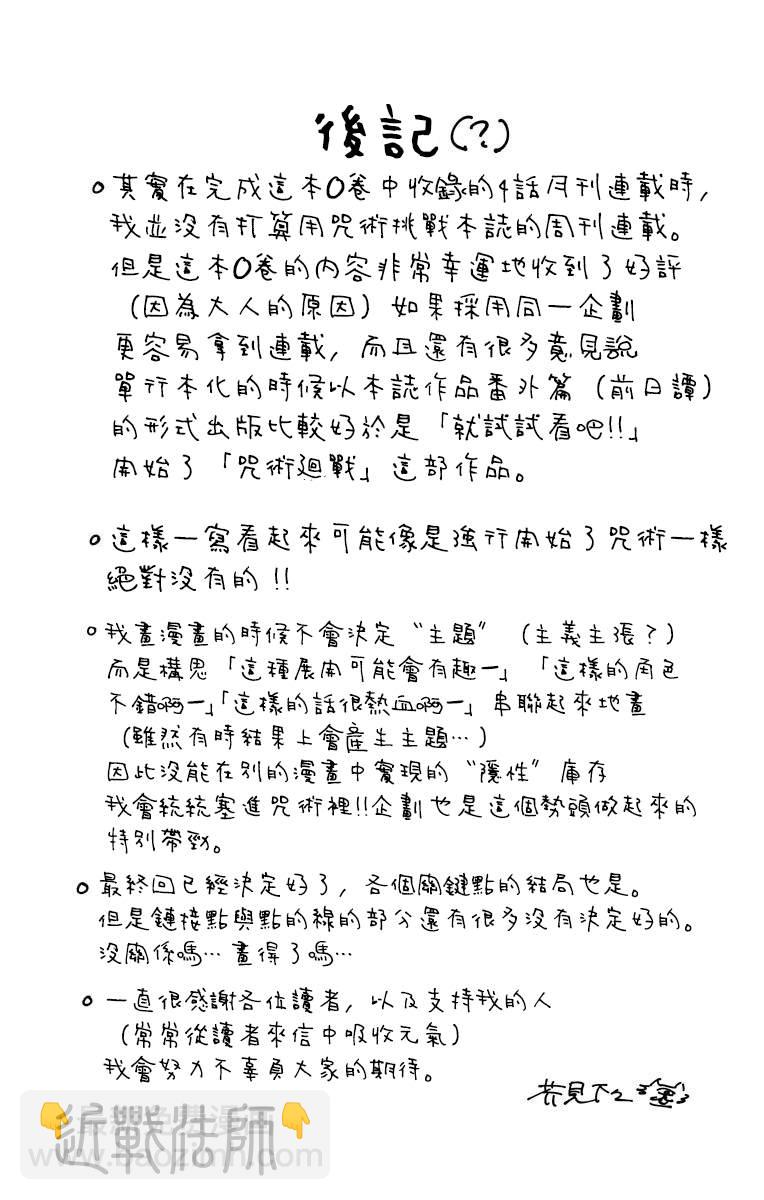 後記(?)
○其實在完成這本0卷中收錄的4話月刊連載時,
我並沒有打算用咒術挑戰本誌的周刊連載。
但是這本0卷的內容非常幸運地收到了好評
(因為大人的原因)如果採用同一企劃
更容易拿到連載,而且還有很多意見說
單行本化的時候以本誌作品番外篇(前日譚)
的形式出版比較好於是「就試試看吧!!」
開始了「咒術廻戰」這部作品。
○這樣一寫看起來可能像是強行開始了咒術一樣
絕對沒有的!!
○我畫漫畫的時候不會決定“主題”(主義主張?)
而是構思「這種展開可能會有趣ー」「這樣的角色
不錯啊ー」「這樣的話很熱血啊ー」串聯起來地畫
(雖然有時結果上會產生主題…)
因此沒能在別的漫畫中實現的“隱性”庫存
我會統統塞進咒術裡!!企劃也是這個勢頭做起來的
特別帶勁。
○最終回已經決定好了,各個關鍵點的結局也是。
但是鏈接點與點的線的部分還有很多沒有決定好的。
沒關係嗎…畫得了嗎…
○一直很感謝各位讀者,以及支持我的人
(常常從讀者來信中吸收元氣)
我會努力不辜負大家的期待。
芥見下々
👇近戰法師👇
www.baozimh.com